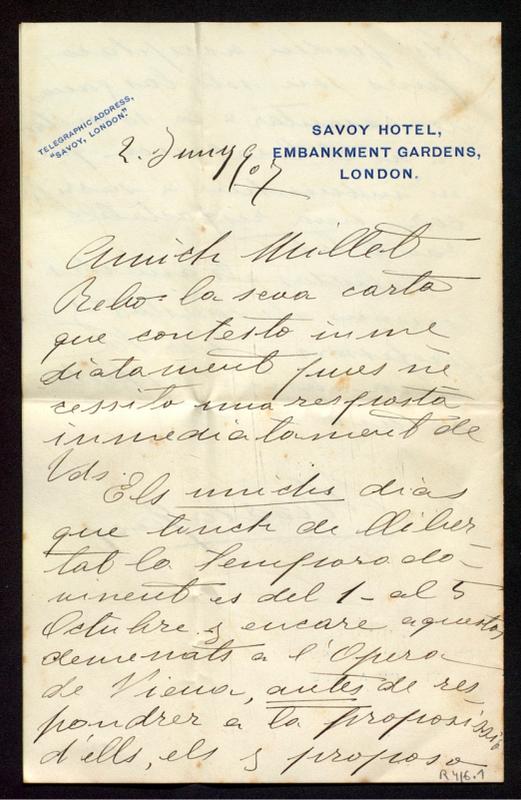 TELEGRAPHIC ADDRESS,
"SAVOY, LONDON."
SAVOY HOTEL,
EMBANKMENT GARDENS,
LONDON.
2. Juny 907
Amich Millet
Rebo la seva carta
que contesto inme
diatament pues ne
cessito una resposta
inmediatament de
Vds.
Els unichs dias
que tinch de lliber-
tat la temporado-
vinent es del 1 - al 5
Octubre y encare aquestos
demenats a l'Opera
de Viena, antes de res
pondrer a la proposissió
d'ells, els y proposo
R 4/6.1